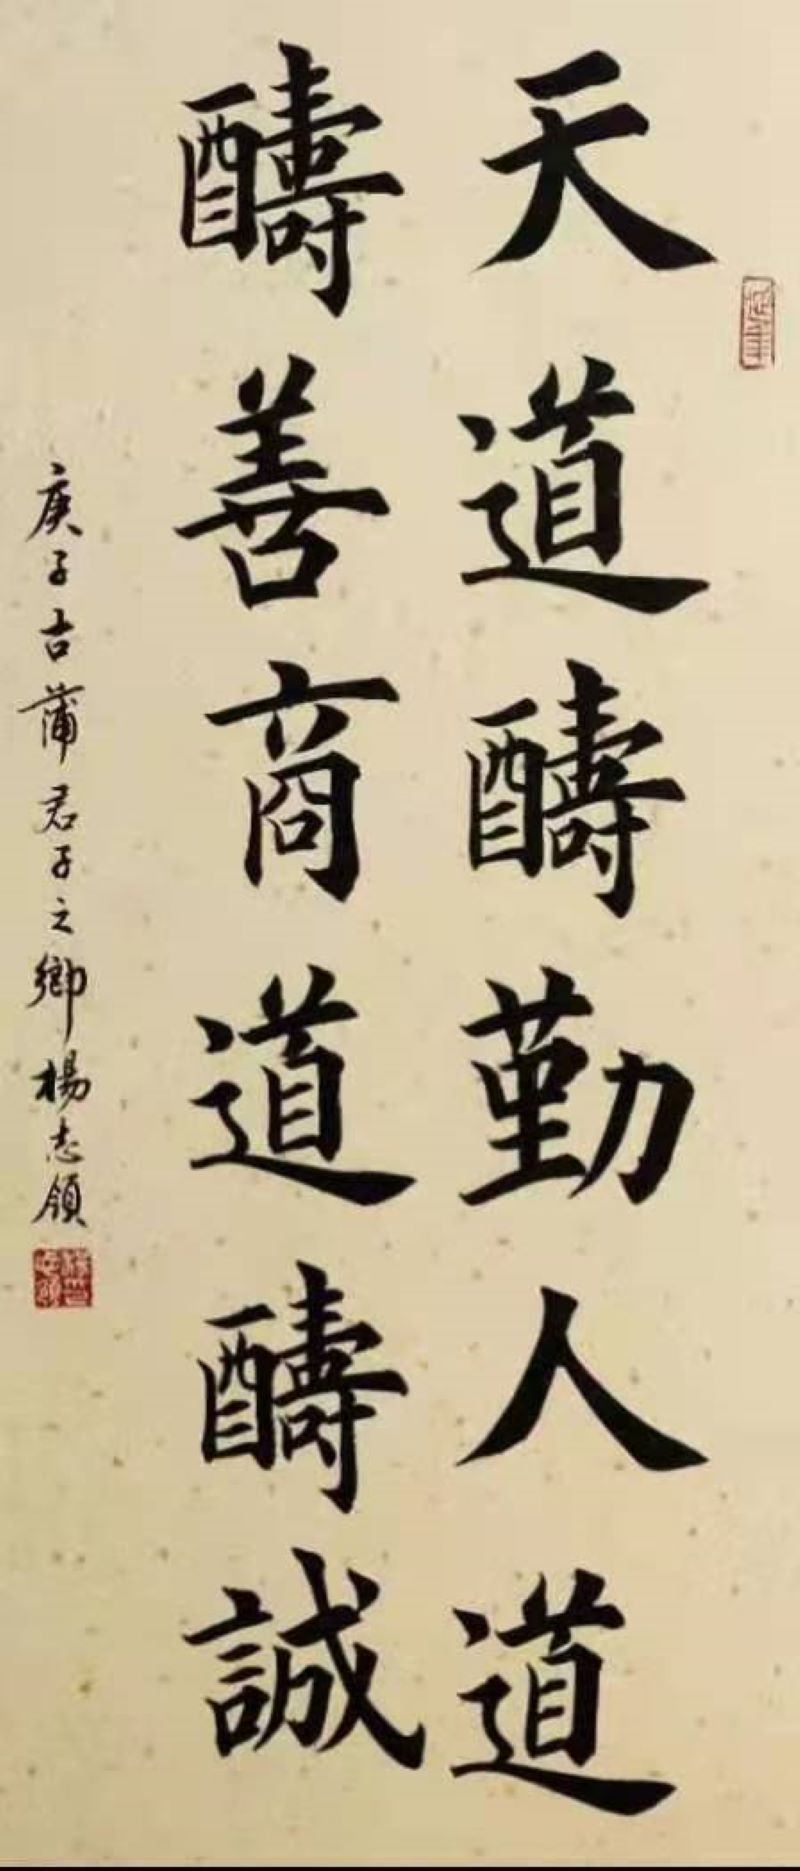 天道醻勤人道
醻善商道醻誠
庚子古蒲君子之鄉楊志領